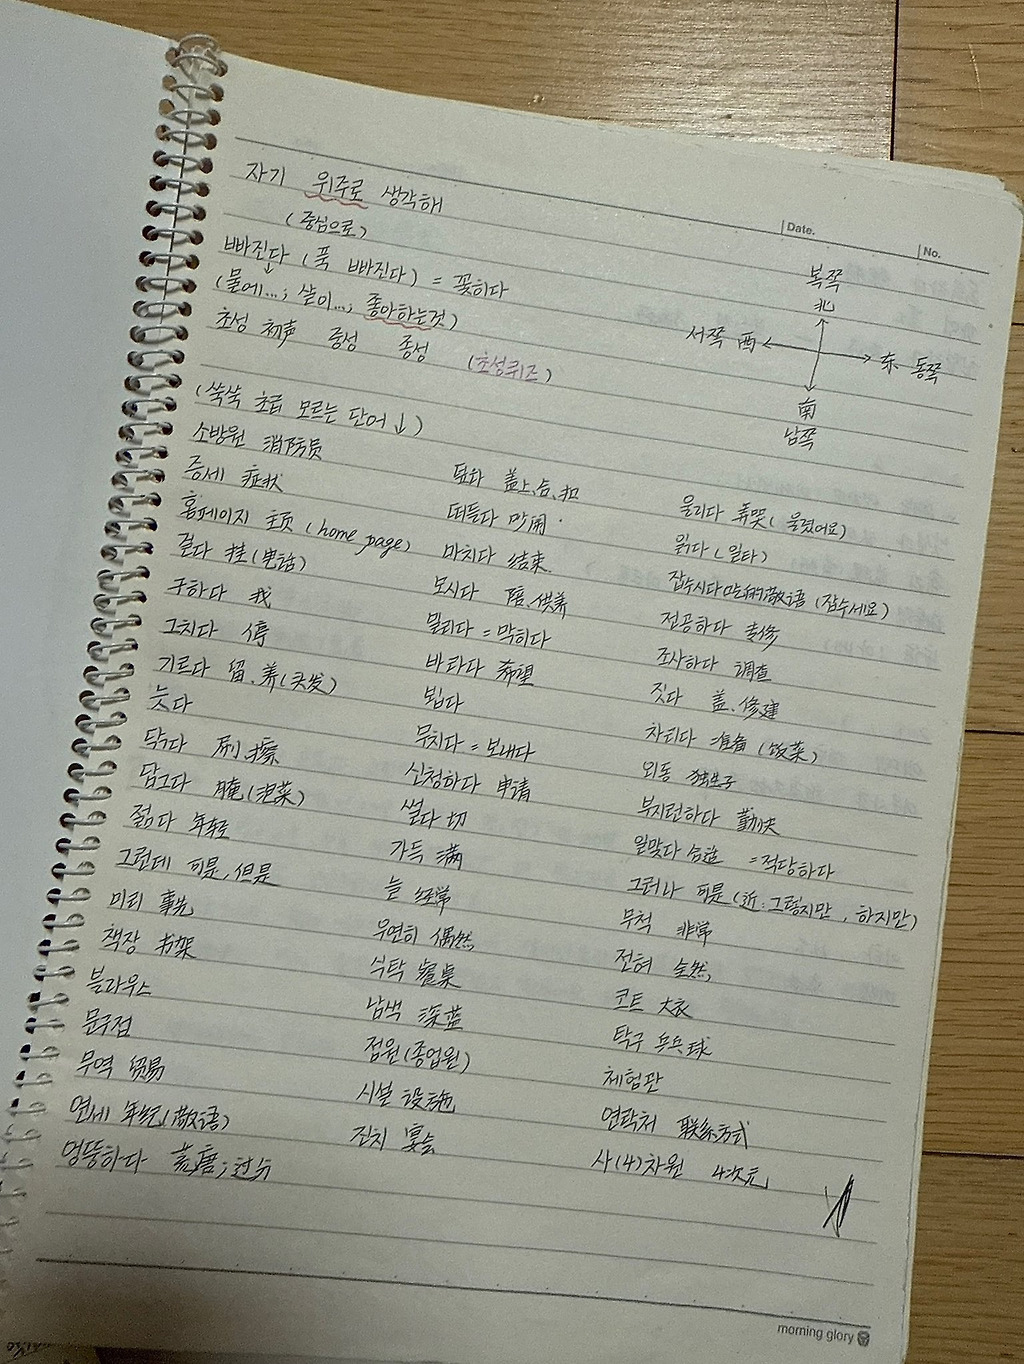 Date.
No.
자기 위주로 생각해
(중심으로)
빠진다 (푹 빠진다) = 꽂히다
(물에...; 살이...; 좋아하는것)
초성 初声 중성 종성 (초성퀴즈)
북쪽
北
서쪽 西
东 동쪽
南
남쪽
(쑥쑥 초급 모르는 단어↓)
소방원 消防员
증세 症状
홈페이지 主页 (home page)
걸다 挂(电话)
구하다 找
그치다 停
기르다 留、养(头发)
늣다
닦다 刷、擦
담그다 腌(泡菜)
젊다 年轻
그런데 可是, 但是
미리 事先
책장 书架
블라우스
문구점
무역 贸易
연세 年纪(敬语)
엉뚱하다 荒唐; 过分
덮다 盖上、合、扣
떠들다 吵闹
마치다 结束
모시다 陪、供养
밀리다 = 막히다
바라다 希望
뵙다
부치다 = 보내다
신청하다 申请
썰다 切
가득 满
늘 经常
우연히 偶然
식탁 餐桌
남색 深蓝
점원(종업원)
시설 设施
잔치 宴会
울리다 弄哭(울렸어요)
읽다(일타)
잡수시다 吃的敬语 (잡수세요)
전공하다 专修
조사하다 调查
짓다 盖、修建
차리다 准备(饭菜)
외동 独生子
부지런하다 勤快
알맞다 合适 =적당하다
그러나 可是(近:그렇지만, 하지만)
무척 非常
전혀 全然
코트 大衣
탁구 乒乓球
체험관
연락처 联系方式
사(4)차원 4次元
morning glory